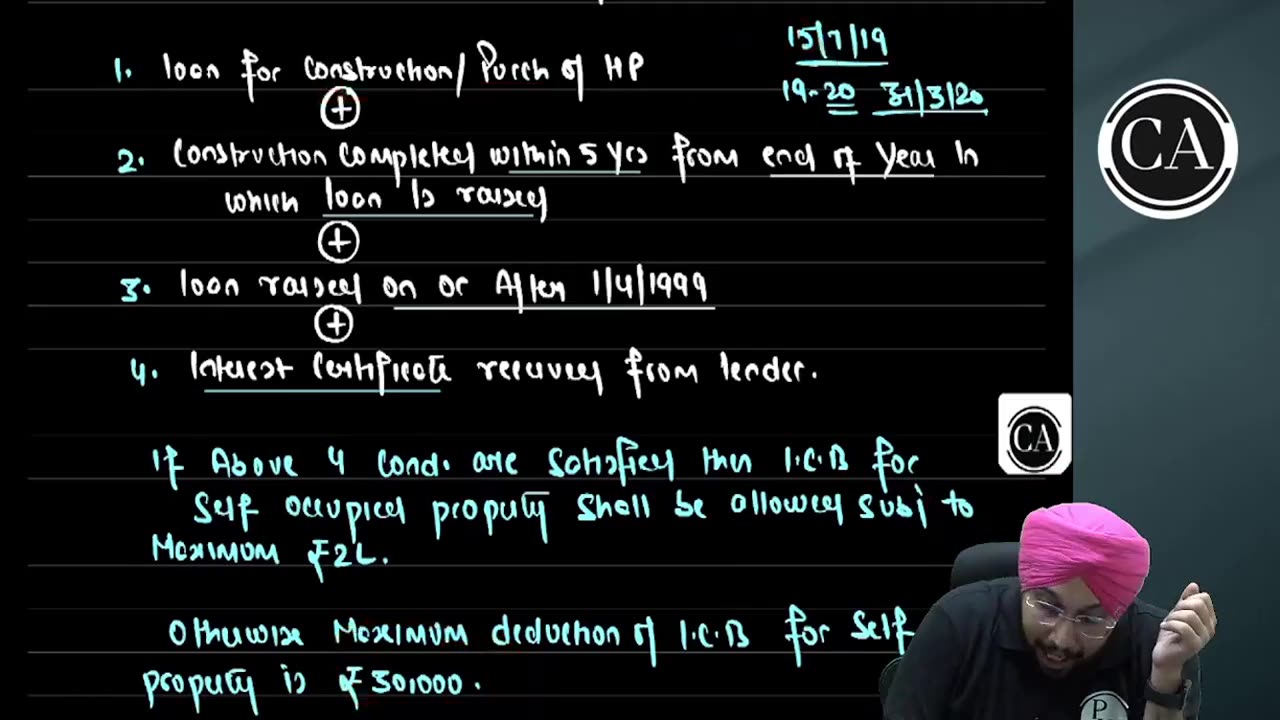 15/7/19
1. loan for construction/ Purch of HP
19-20 31/3/20
+
2. Construction completed within 5 yrs from end of Year In
which loan Is raised
+
3. loan raised on or After 1/4/1999
+
4. Interest Certificate received from lender.
If Above 4 Cond. are Satisfied then I.C.B for
Self occupied property Shall be allowed Subj to
Maximum ₹2L.
Otherwise Maximum deduction of I.C.B for Self
property is ₹30,000.
CA
CA
P